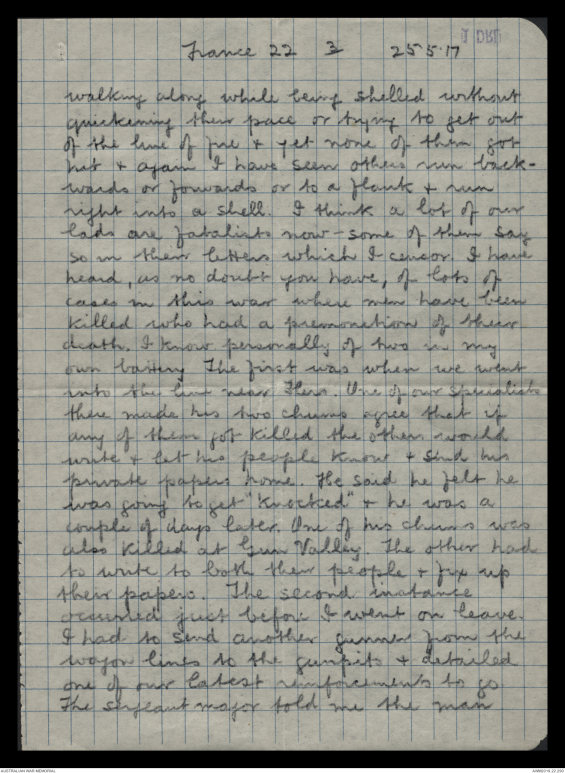 France 22 3 25·5·17
1 DRL
walking along while being shelled without
quickening their pace or trying to get out
of the line of fire & yet none of them got
hit & again I have seen others run back-
wards or forwards or to a flank & run
right into a shell. I think a lot of our
lads are fatalists now – some of them say
so in their letters which I censor. I have
heard, as no doubt you have, of lots of
cases in this war where men have been
killed who had a premonition of their
death. I know personally of two in my
own battery The first was when we went
into the line near Flers. One of our specialists
there made his two chums agree that if
any of them got killed the others would
write & let his people know & send his
private papers home. He said he felt he
was going to get "knocked" & he was a
couple of days later. One of his chums was
also killed at Gun Valley. The other had
to write to both their people & fix up
their papers. The second instance
occurred just before I went on leave.
I had to send another gunner from the
wagon lines to the gunpits & detailed
one of our latest reinforcements to go
The sergeant major told me the man
AUSTRALIAN WAR MEMORIAL